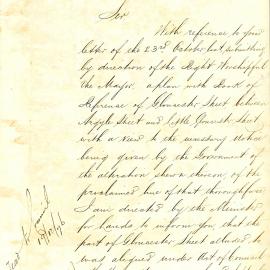 Sir
With reference to your
letter of the 23rd October last, submitting
by direction of the Right Worshipful
the Mayor, a plan with Book of
Reference of Gloucester Street between
Argyle Street and Little Street
with a view to the necessary Notice
being given by the Government of
the alteration shewn thereon, of the
proclaimed line of that thoroughfare
I am directed by the Minister
for Lands to inform You, that the
part of Gloucester Street alluded to
was aligned under Act of Council